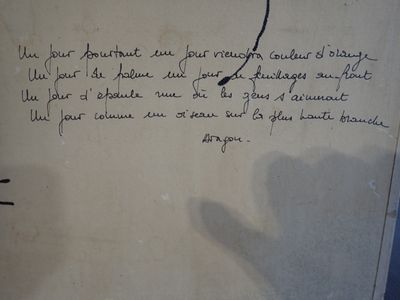 Un jour pourtant un jour viendra couleur d'orange
Un jour de palme un jour de feuillages au front
Un jour d'epaule nue où les gens s'aimeront
Un jour comme un oiseau sur la plus haute branche
Aragon.